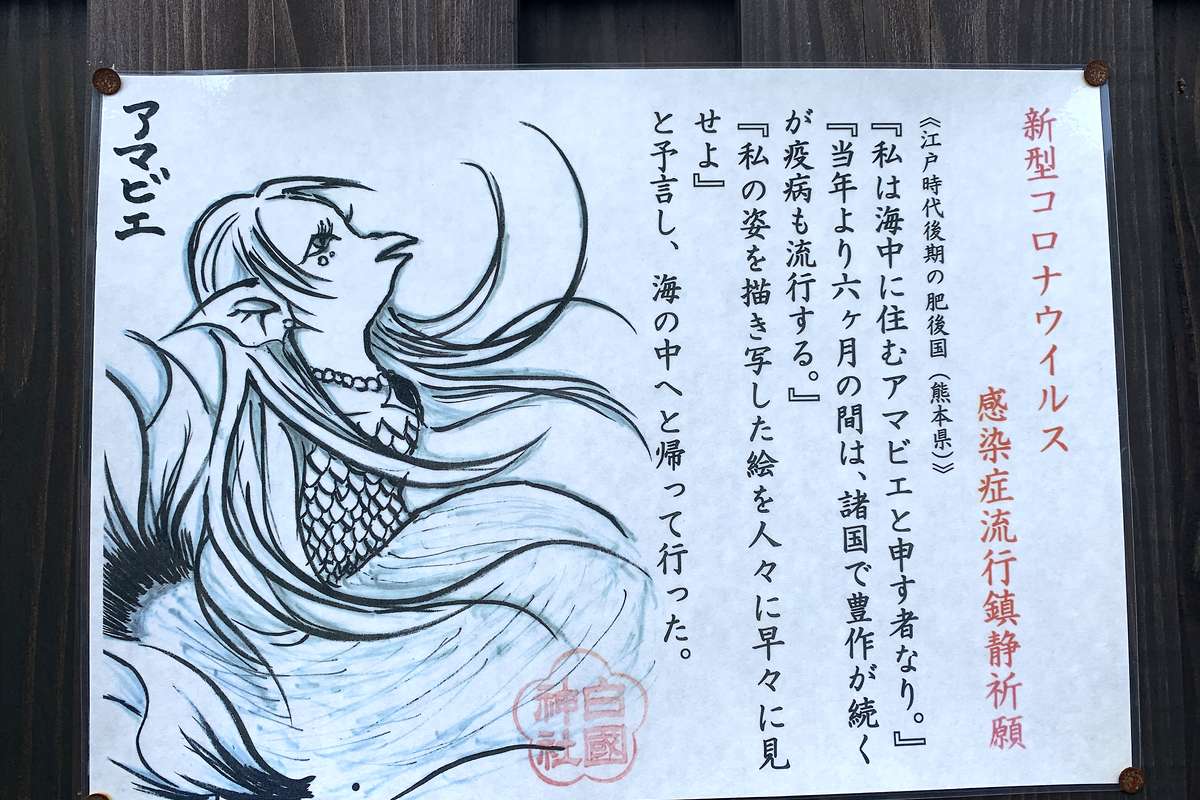 新型コロナウイルス
感染症流行鎮静祈願
《江戸時代後期の肥後国（熊本県）》
『私は海中に住むアマビエと申す者なり。』
『当年より六ヶ月の間は、諸国で豊作が続く
が疫病も流行する。』
『私の姿を描き写した絵を人々に早々に見
せよ』
と予言し、海の中へと帰って行った。
アマビエ
白國
神社